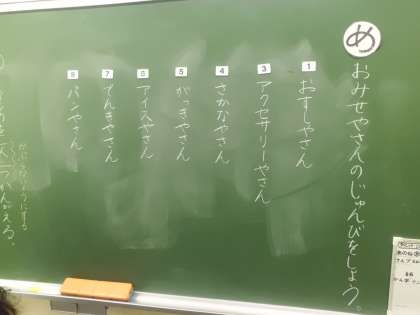 め
おみせやさんのじゅんびをしよう。
1
おすしやさん
3
アクセサリーやさん
4
さかなやさん
5
がっきやさん
6
アイスやさん
7
でんきやさん
9
パンやさん